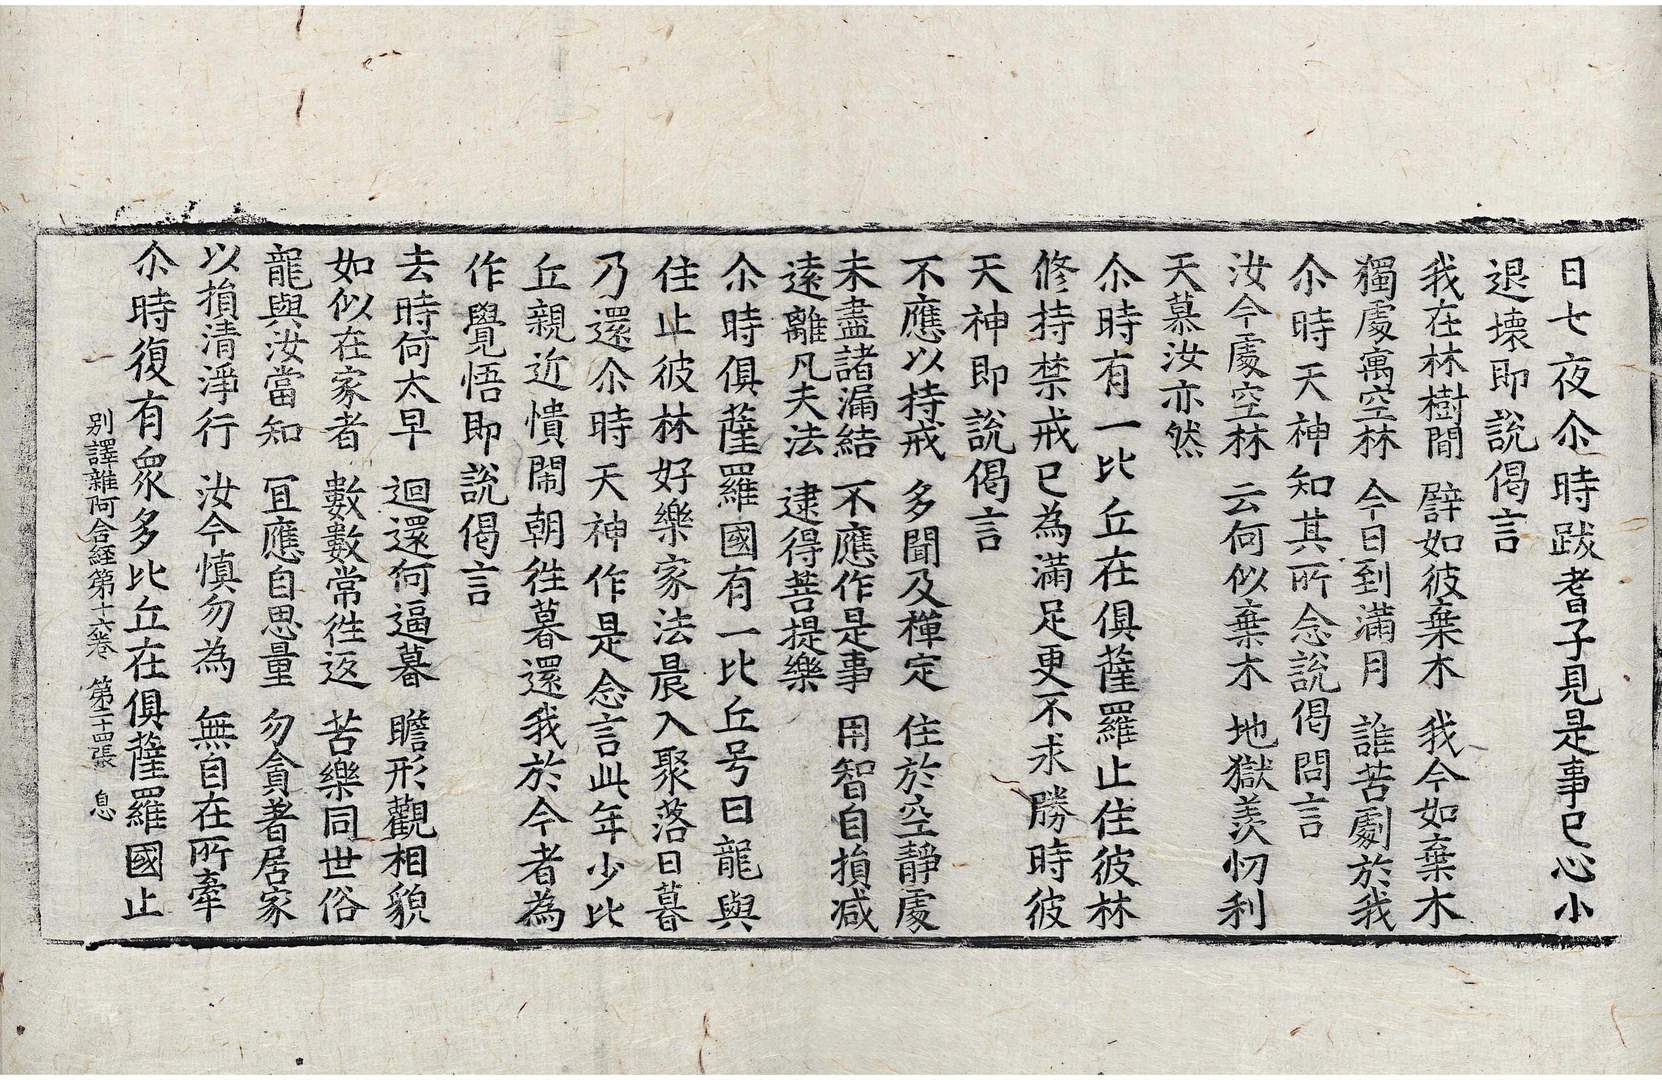 日七夜尒時跋耆子見是事已心小
退壞即說偈言
我在林樹閒　譬如彼棄木　我今如棄木
獨處寓空林　今日到滿月　誰苦劇於我
尒時天神知其所念說偈問言
汝今處空林　云何似棄木　地獄羨忉利
天慕汝亦然
尒時有一比丘在俱薩羅止住彼林
修持禁戒已為滿足更不求勝時彼
天神即說偈言
不應以持戒　多聞及禪定　住於空靜處
未盡諸漏結　不應作是事　用智自損減
遠離凡夫法　逮得菩提樂
尒時俱薩羅國有一比丘号曰龍與
住止彼林好樂家法晨入聚落日暮
乃還尒時天神作是念言此年少比
丘親近憒鬧朝徃暮還我於今者為
作覺悟即說偈言
去時何太早　迴還何逼暮　瞻形觀相貌
如似在家者　數數常徃返　苦樂同世俗
龍與汝當知　冝應自思量　勿貪著居家
以損清淨行　汝今慎勿為　無自在所牽
尒時復有衆多比丘在俱薩羅國止
別譯雜阿含經第十六卷　第二十四張　息